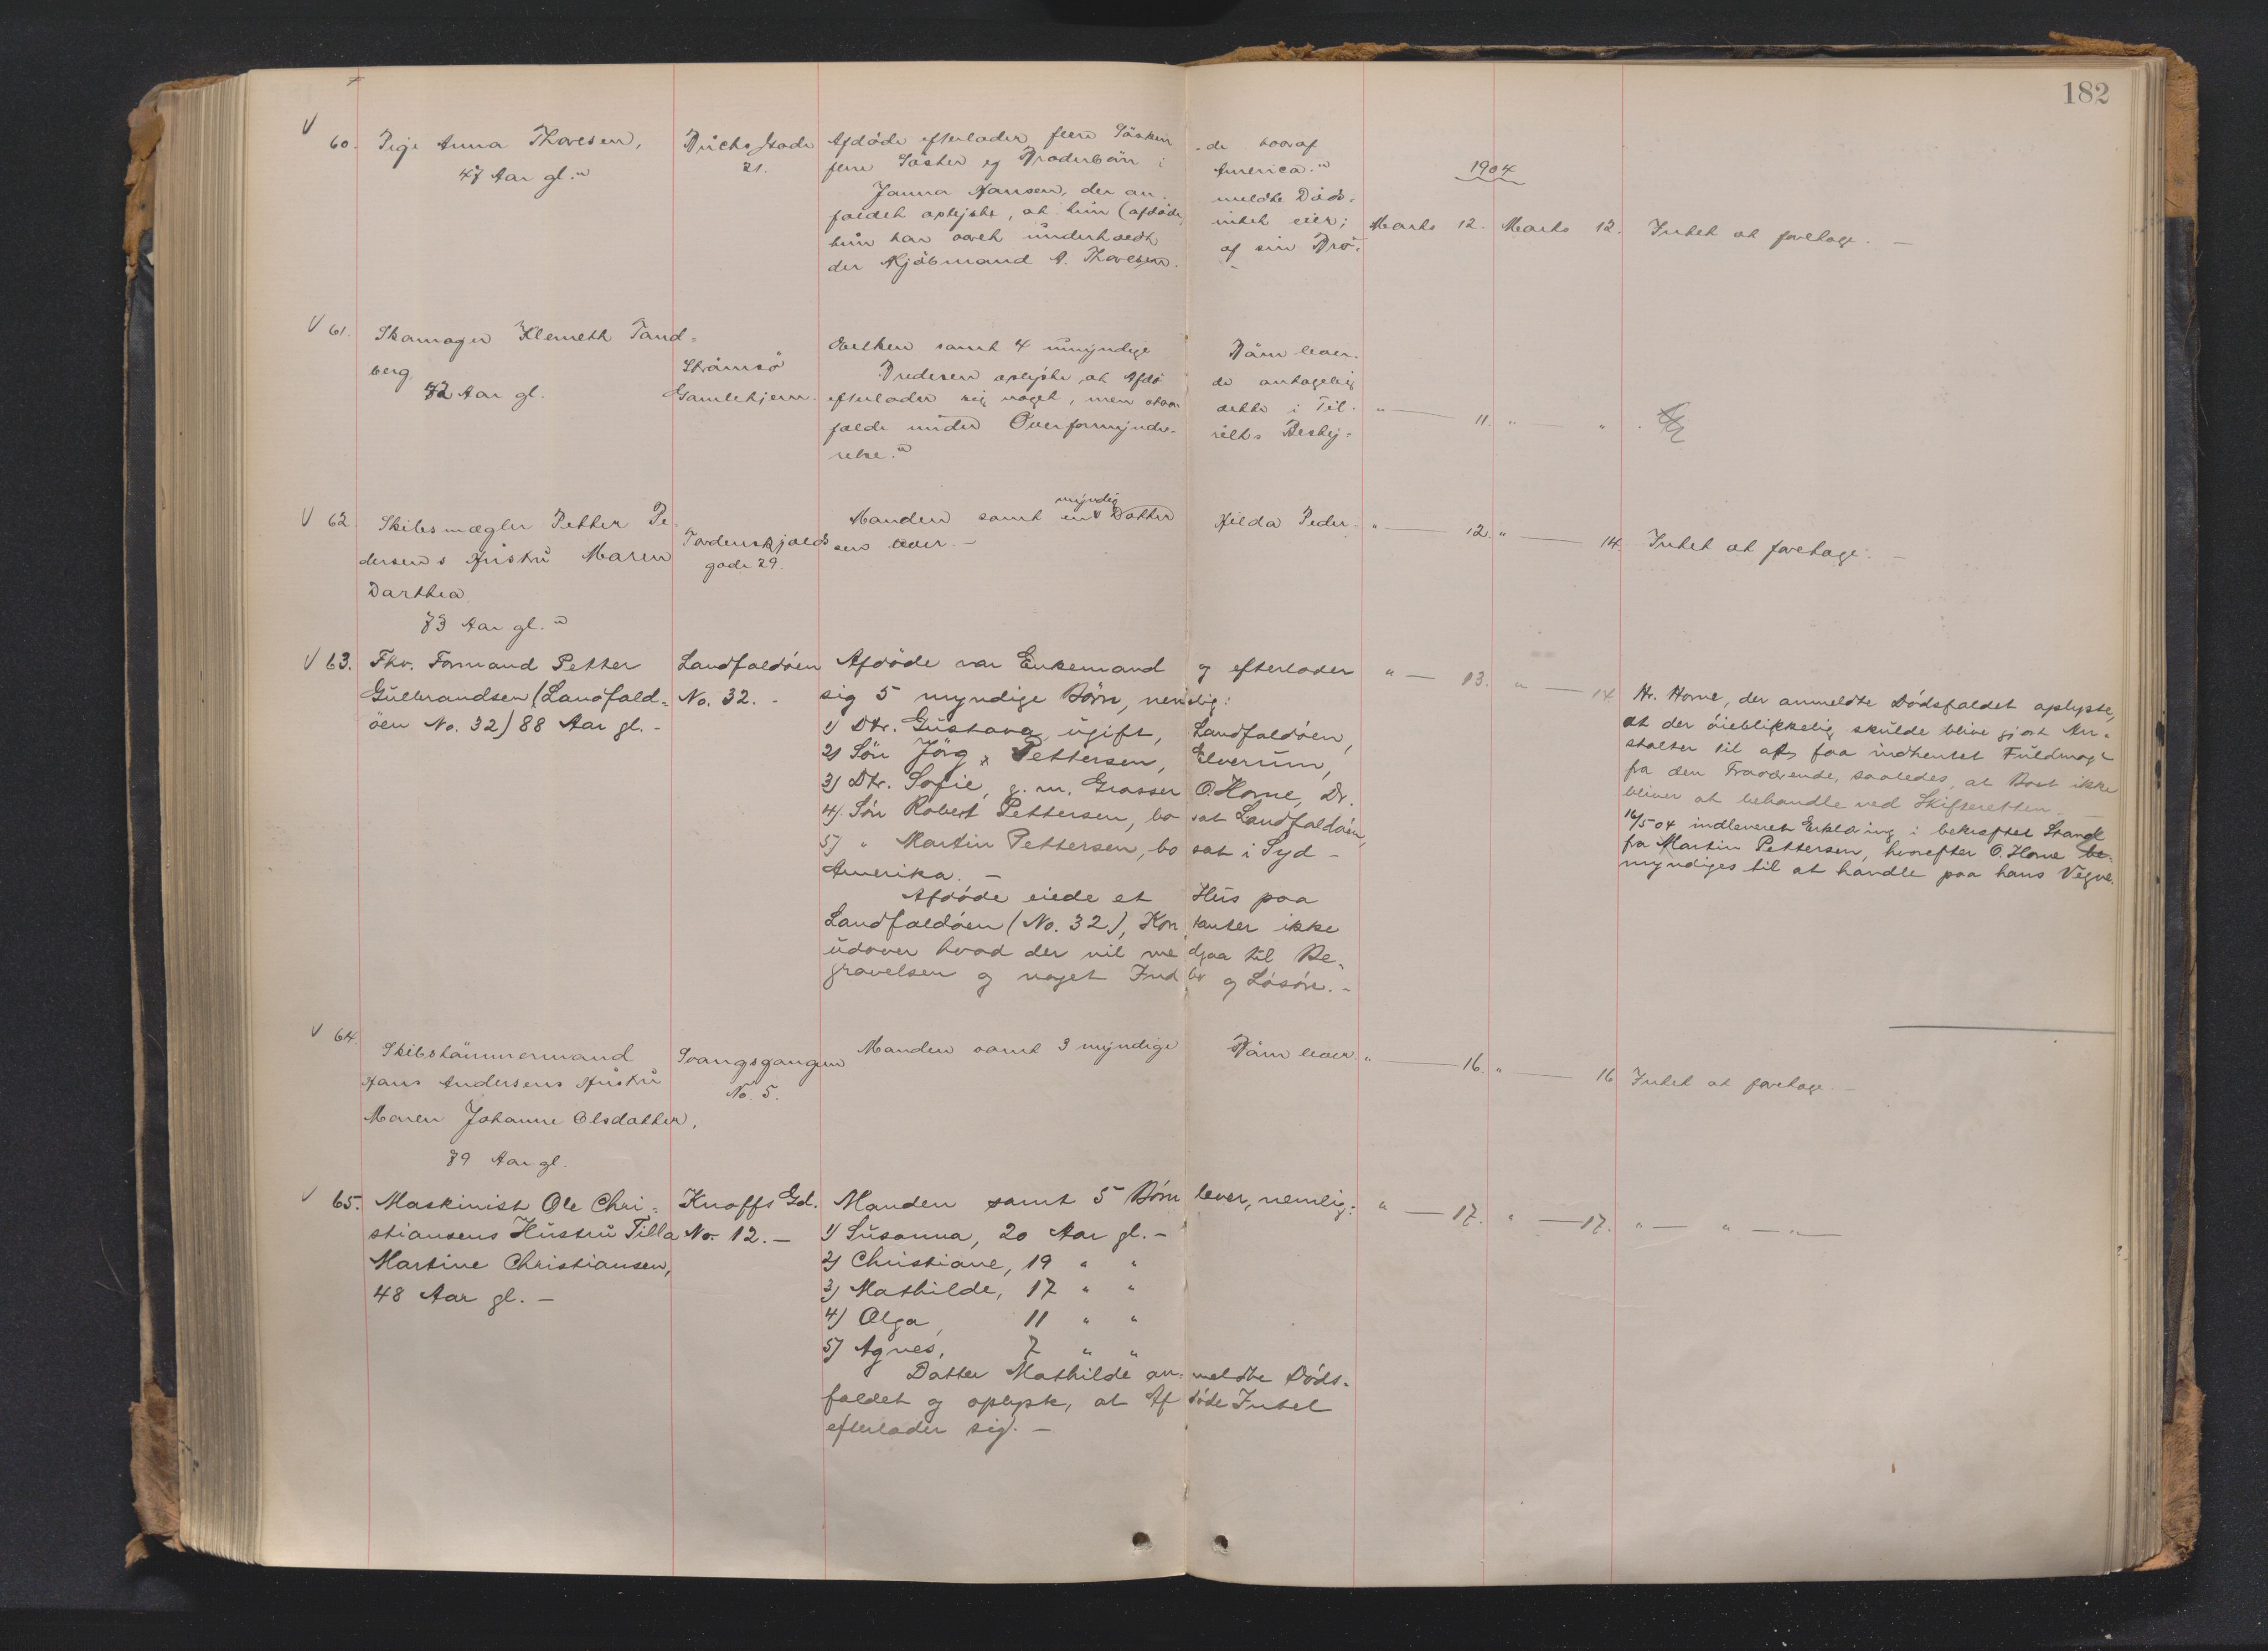 182
60. Pige Anna Thoresen,
47 Aar gl.
21.
Afdöde efterlader flere Sösken-
de hvoraf
flere Söster og Broderbörn i
America.
Janna Hansen, der an-
meldte Döds-
faldet oplyste, at hun (afdöde)
intet eier;
hun har været underholdt
af sin Bro-
der Kjöbmand A. Thoresen.
1904
Marts 12. Marts 12. Intet at foretage. —
61. Skomager Klemeth Tand-
berg
72 Aar gl.
Strömsö
Gamlehjem.
Enken samt 4 umyndige
Börn lever.
oplyste, at Afdö-
de antagelig
efterlader sig noget, men
dette i Til-
fælde under Overformynde-
riets Besty-
relse.
" — 11. " — "
62. Skibsmægler Petter Pe-
dersens Hustru Maren
Dorthea
73 Aar gl.
Tordenskjolds
gade 29.
myndig
Manden samt en Datter
Hilda Peder-
sen lever. —
" — 12. " — 14. Intet at foretage. —
63. Fhv. Formand Petter
Gulbrandsen (Landfald-
öen No. 32) 88 Aar gl. -
Landfaldöen
No. 32. -
Afdöde var Enkemand og efterlader
sig 5 myndige Börn, nemlig:
1) Dtr. Gustava, ugift, Landfaldöen,
2) Sön Jörg. Pettersen, Elverum,
3) Dtr. Sofie, g. m. Grosser O. Horne, Dr.
4) Sön Robert Pettersen, bosat Landfaldöen,
5) " Martin Pettersen, bosat i Syd-
Amerika. —
Afdöde eiede et Hus paa
Landfaldöen (No. 32), Kontanter ikke
udover hvad der vil medgaa til Be-
gravelsen og noget Indbo og Lösöre. -
" — 13. " — 14.
Hr. Horne, der anmeldte Dödsfaldet oplyste,
at der öieblikkelig skulde blive gjort An-
stalter til at faa indhentet Fuldmagt
fra den Fraværende, saaledes, at Boet ikke
bliver at behandle ved Skifteretten. —
16/5 04 indleveret Erklæring i bekræftet Stand
fra Martin Pettersen, hvorefter O. Horne be-
myndiges til at handle paa hans Vegne.
64. Skibstömmermand
Hans Andersens Hustru
Maren Johanne Olsdatter,
79 Aar gl.
Svangsgangen
No. 5.
Manden samt 3 myndige Börn lever.
" — 16. " — 16. Intet at foretage. —
65. Maskinist Ole Chri-
stiansens Hustru Tilla
Martine Christiansen,
48 Aar gl. —
Knoffs Gd.
No. 12. —
Manden samt 5 Börn lever, nemlig:
1) Susanna, 20 Aar gl. -
2) Christiane, 19 " "
3) Mathilde, 17 " "
4) Olga, 11 " "
5) Agnes, 7 " "
Datter Mathilde anmeldte Döds-
faldet og oplyste, at Afdöde Intet
efterlader sig. —
" — 17. " — 17. " — " — " —